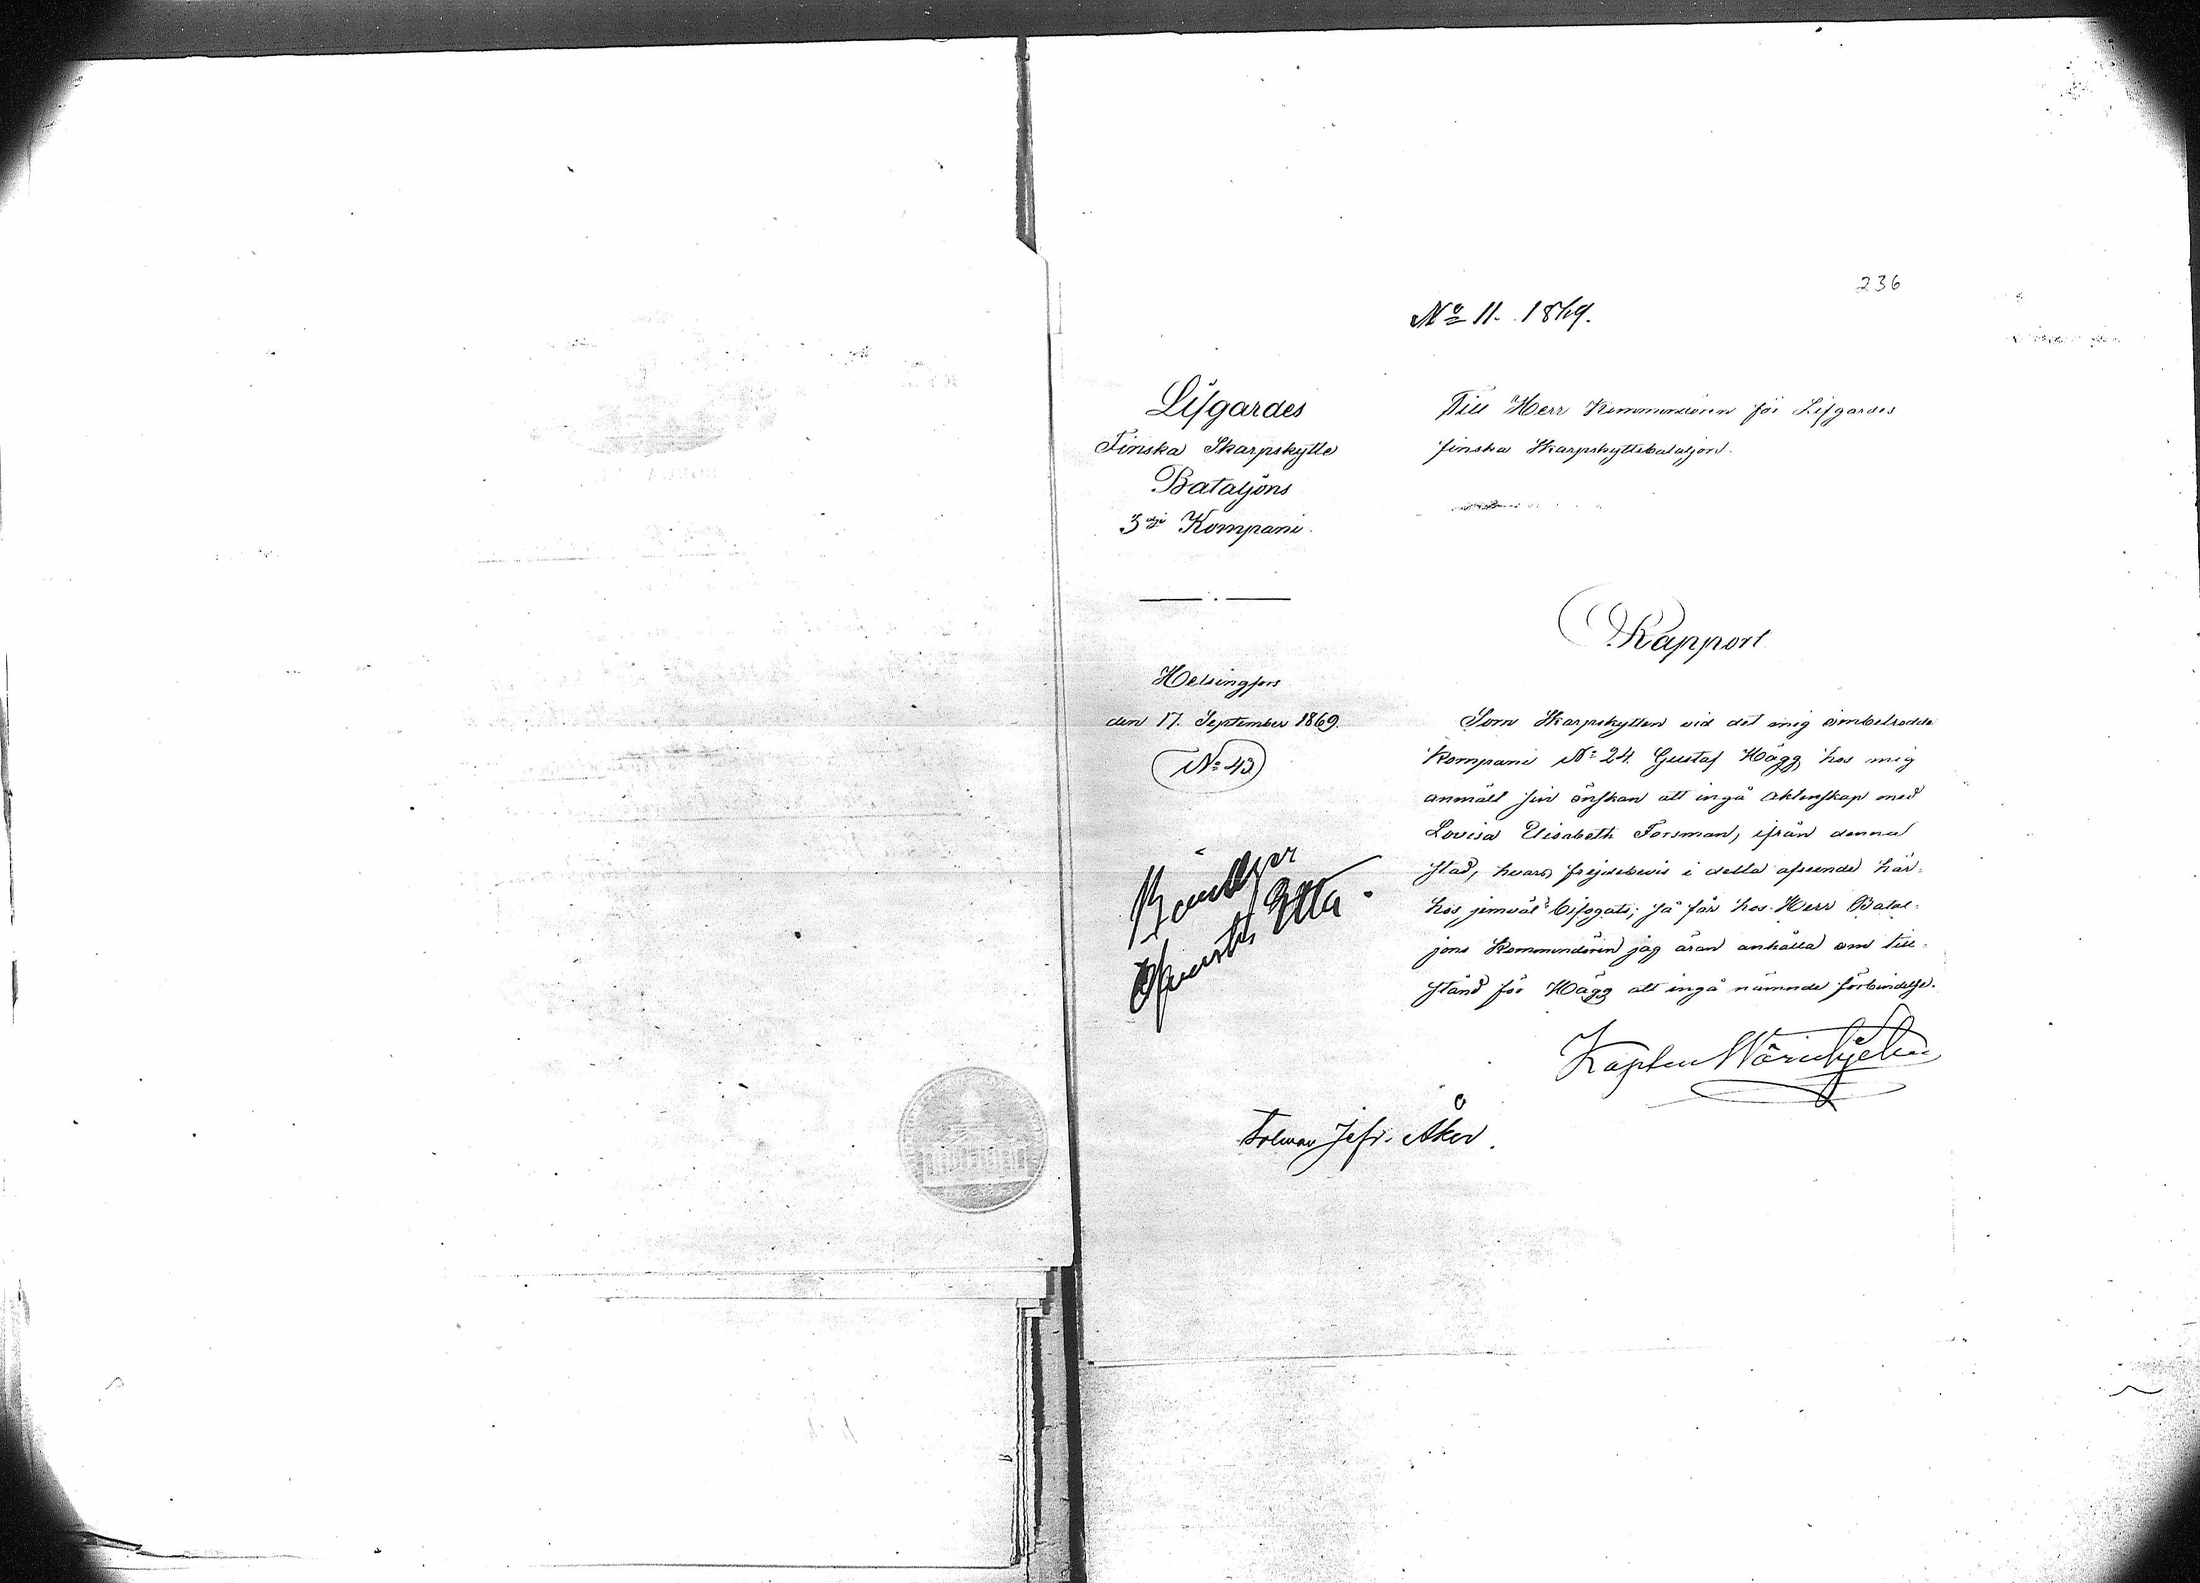 236
No 11. 1869.
Lifgardes
Finska Skarpskytte
Bataljons
3dje Kompani.
Helsingfors
den 17. September 1869.
No 43
Till Herr Kommendören för Lifgardes
finska Skarpskyttebataljon.
Rapport
Som Skarpskytten vid det mig ombetrodde
Kompani No 24 Gustaf Hägg hos mig
anmält sin önskan att ingå äktenskap med
Lovisa Elisabeth Forsman, ifrån denna
stad, hvars frejdebevis i detta afseende här-
hos jemväl bifogats; så får hos Herr Batal-
jons Kommendören jag äran anhålla om till-
stånd för Hägg att ingå nämnde förbindelse.
Kapten
Beviljas
Öfverste